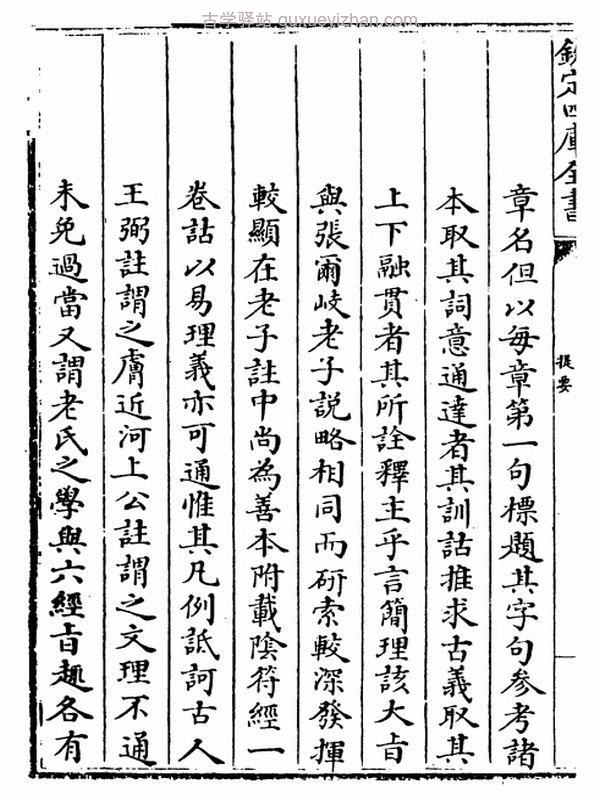 古学驿站 guxueyizhan.com
欽定四庫全書
提要
章名但以每章第一句標題其字句參考諸
本取其詞意通達者其訓詁推求古義取其
上下融貫者其所詮釋主乎言簡理該大㫖
與張爾岐老子説略相同而研索較深發揮
較顯在老子註中尚為善本附載陰符經一
卷詁以易理義亦可通惟其凡例詆訶古人
王弼註謂之膚近河上公註謂之文理不通
未免過當又謂老氏之學與六經㫖趣各有